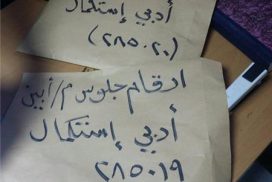 أدبي إستكمال
(٢٨٥٠٢٠)
ارقام جلوس م/أبين
أدبي إستكمال
٢٨٥٠١٩